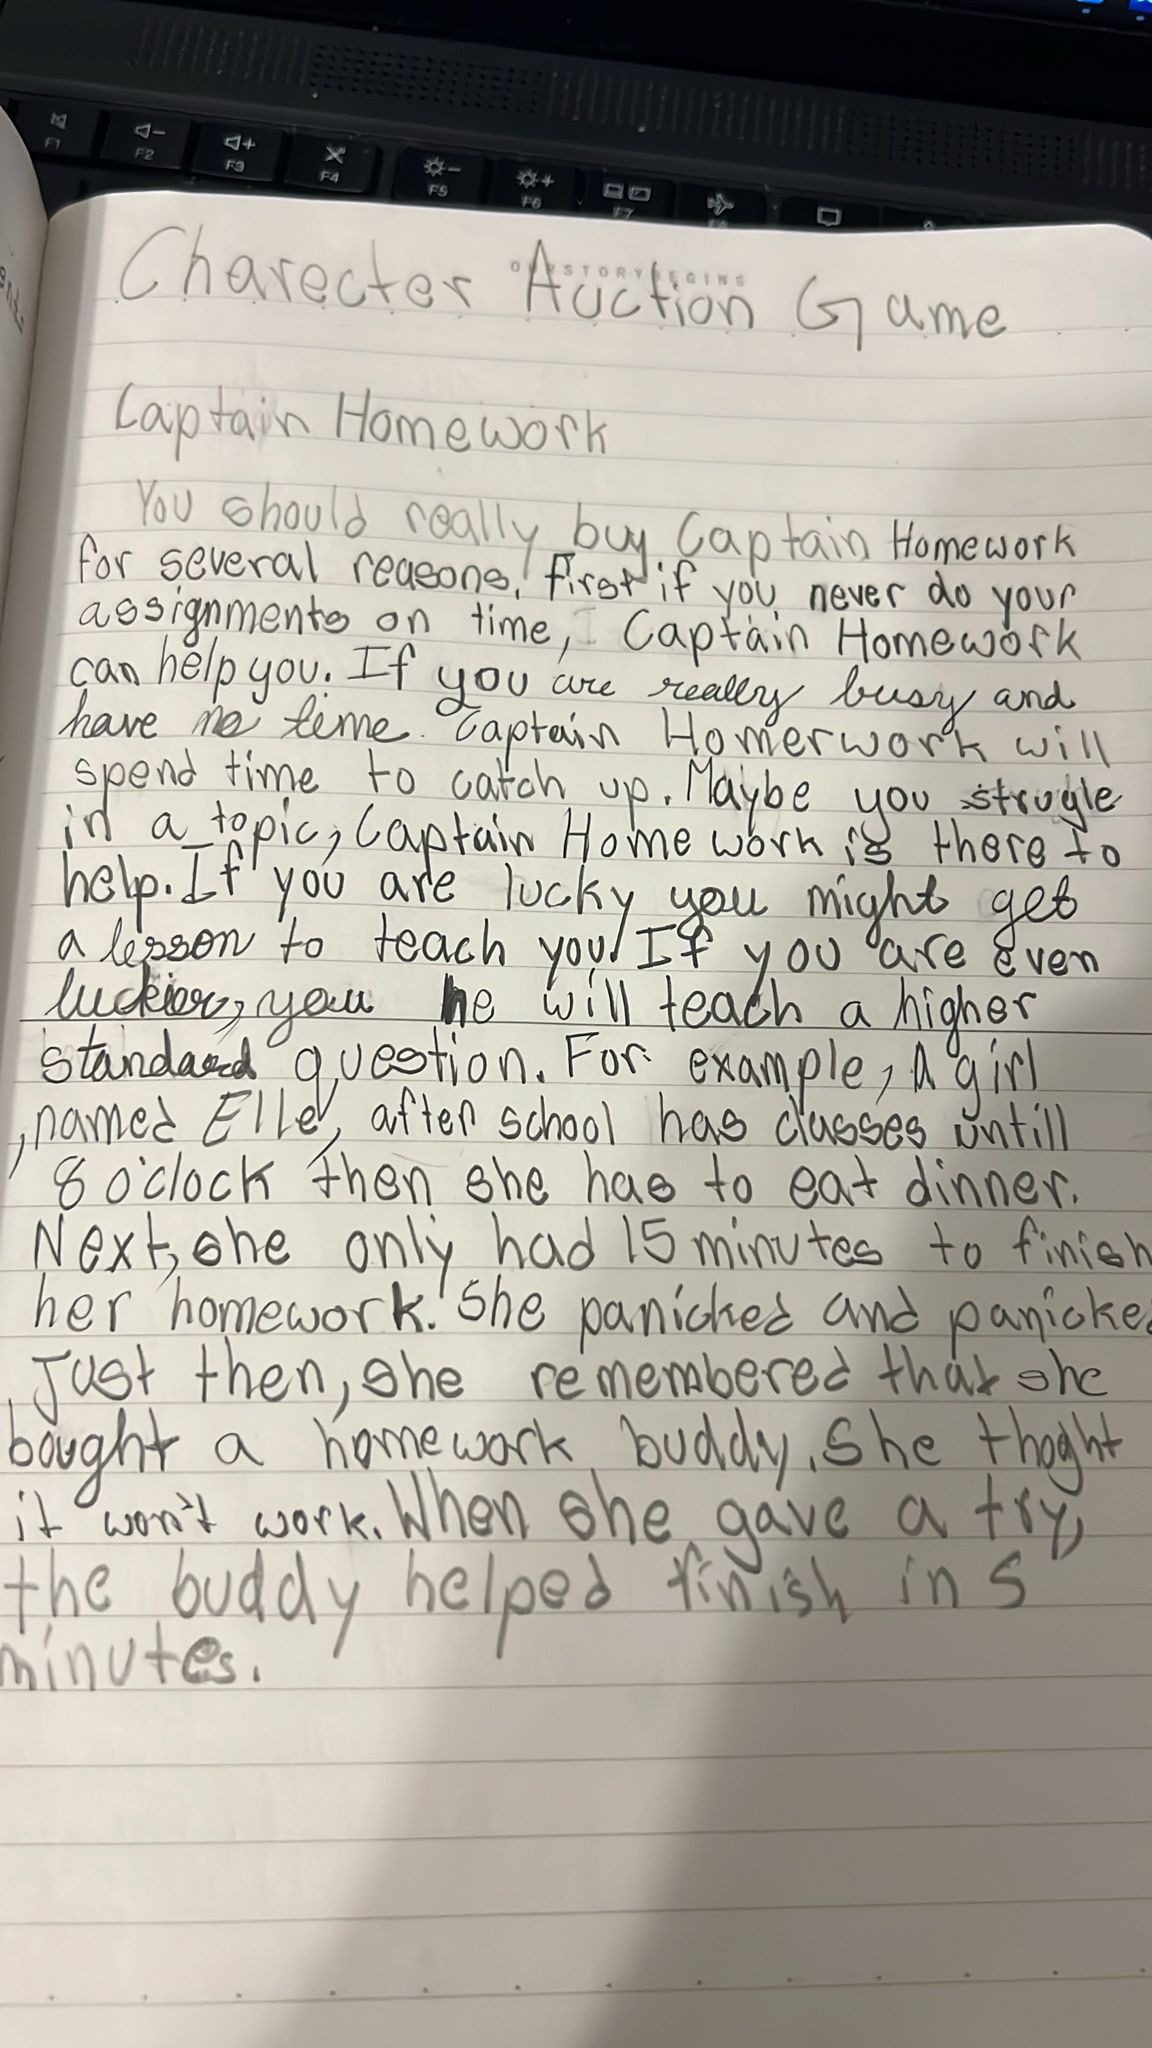 Charecter Auction Game
Captain Homework
You should really buy Captain Homework
for several reasons, first if you never do your
assignments on time, Captain Homework
can help you. If you are really busy and
have no time. Captain Homerwork will
spend time to catch up. Maybe you strugle
in a topic, Captain Homework is there to
help. If you are lucky you might get
a lesson to teach you! If you are even
luckier, you he will teach a higher
standard question. For example, A girl
,named Elle, after school has classes untill
8 o'clock then she has to eat dinner.
Next, she only had 15 minutes to finish
her homework. She panicked and panicke
Just then, she remembered that she
bought a homework buddy. She thoght
it won't work. When she gave a try,
the buddy helped finish in 5
minutes.
F1 F2 F3 F4 F5 F6 F7